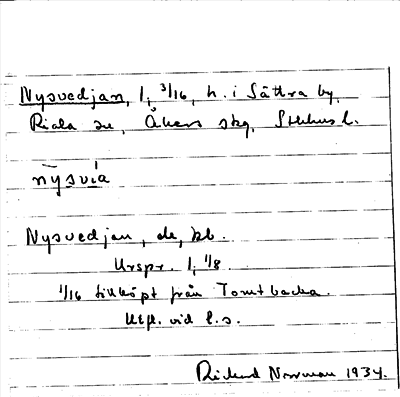 Nysvedjan, 1, 3/16, h. i Sättra by,
Riala sn, Åkers skg, Sthlms l.
nȳsvía
Nysvedjan, de, bb.
Urspr. 1, 1/8
1/16 tillköpt från Tomtbacka.
Utfl. vid l.s.
Rickard Norrman 1934.